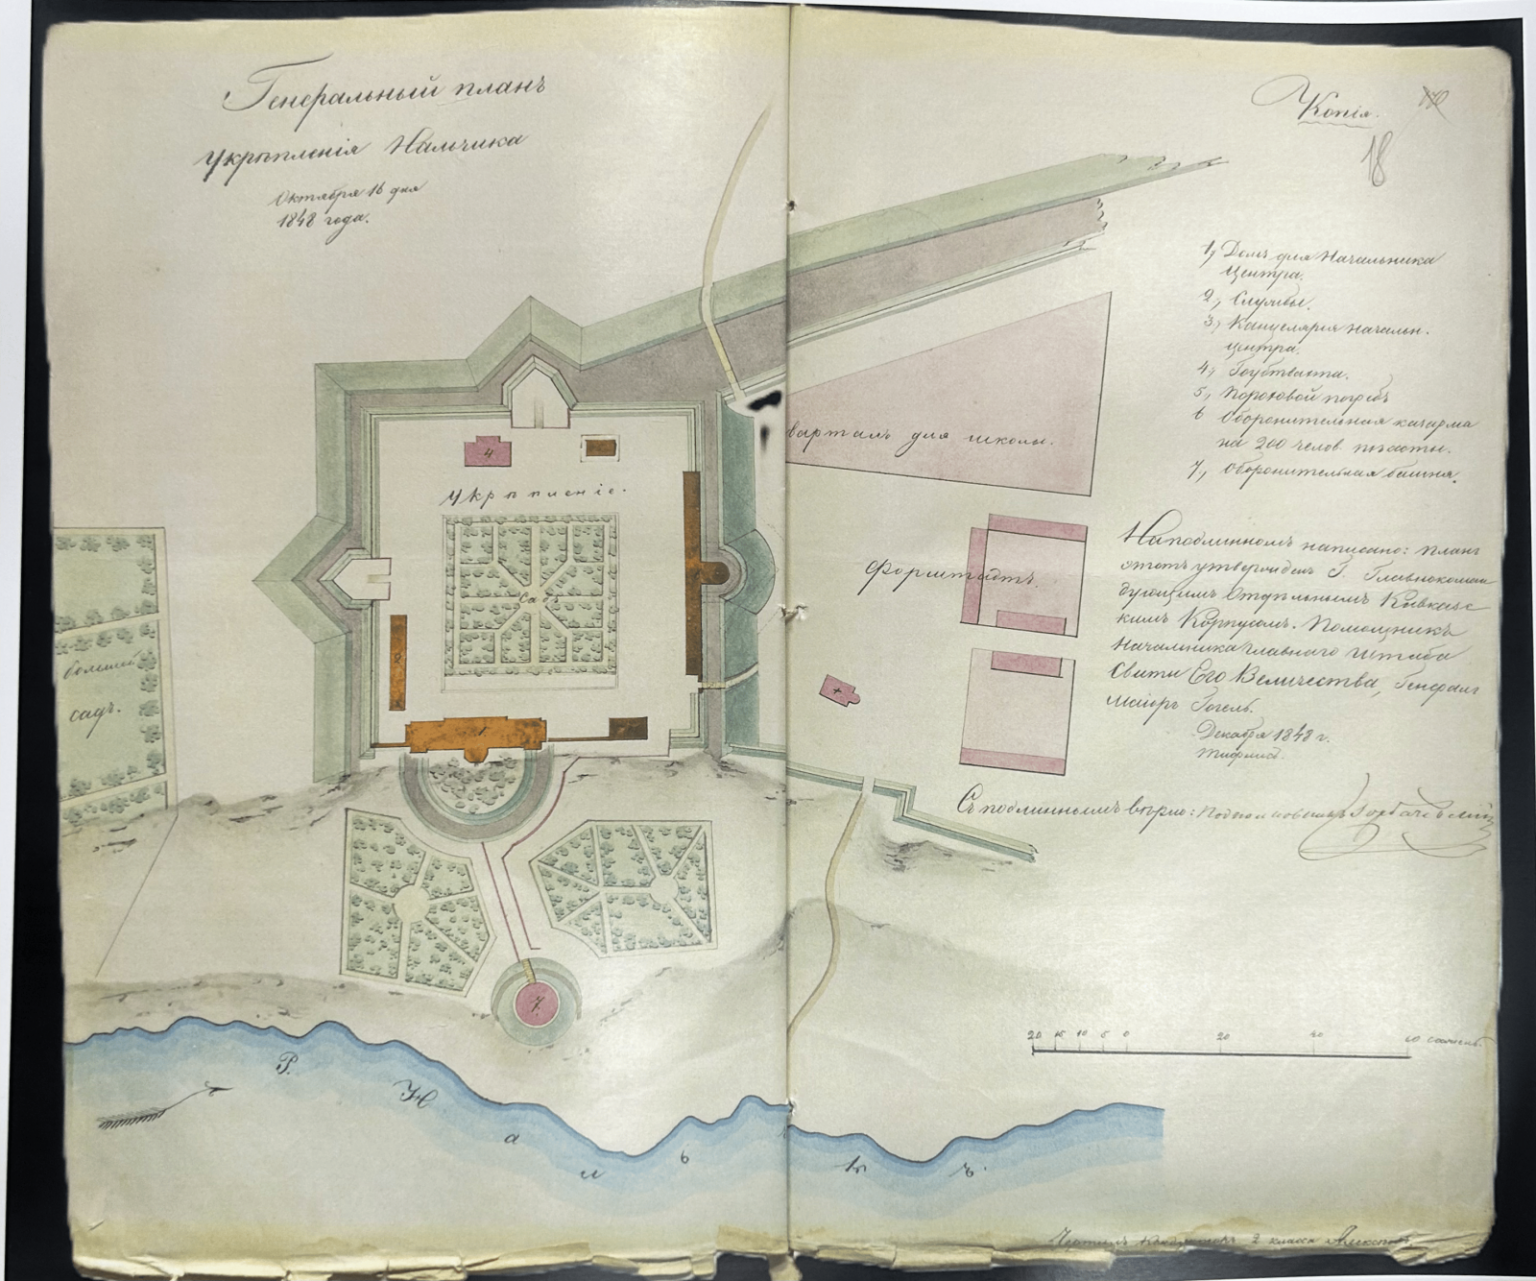 Генеральный планъ
укрѣпленія Нальчика
Октября 16 дня
1848 года.
Копія.
18
1, Домъ для Начальника
Центра.
2, Службы.
3, Канцелярія начальн.
центра.
4, Гоубтвахта.
5, Пороховой погребъ
6 Оборонительная казарма
на 200 челов. пѣхоты.
7, Оборонительная башня.
4
Укрѣпленіе.
кварталъ для школы.
Садъ
Форштадтъ.
На подлинномъ написано: планъ
этотъ утвержденъ Г. Главнокоман
дующимъ Отдѣльнымъ Кавказс
кимъ Корпусомъ. Помощникъ
Начальника главнаго штаба
Свиты Его Величества, Генералъ
Маіоръ Гогель.
Декабря 1848 г.
Тифлисъ.
большой
садъ.
2
1
Съ подлиннымъ вѣрно: Подполковникъ Горбачевскій
7.
20 15 10 5 0 20 40 60 сажень.
Р.
Н а л ь ч и к ъ.
Чертилъ Кондукторъ 2 класса